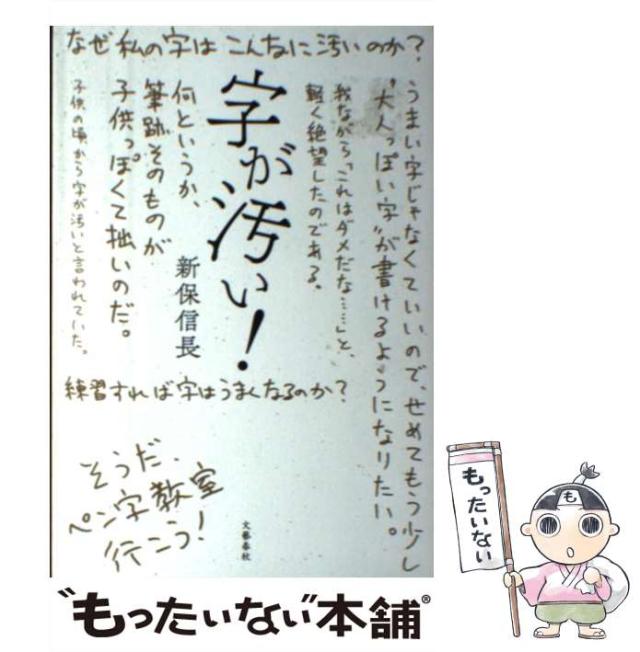 なぜ私の字はこんなに汚いのか？
うまい字じゃなくていいので、せめてもう少し
“大人っぽい字”が書けるようになりたい。
我ながら「これはダメだな……」と、
軽く絶望したのである。
字が汚い！
新保信長
何というか、
筆跡そのものが
子供っぽくて拙いのだ。
子供の頃から字が汚いと言われていた。
練習すれば字はうまくなるのか？
そうだ、
ペン字教室
行こう！
文藝春秋
“もったいない”本舗®
もったいない
も